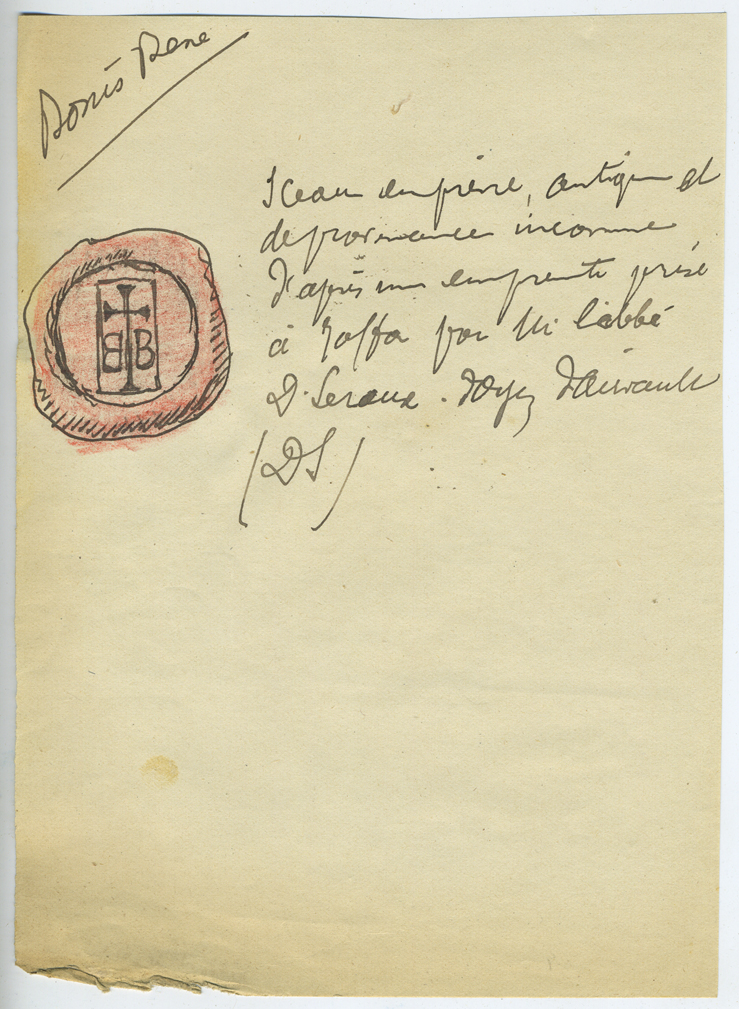 Bonis Rene
Sceau en pierre, antique et
de provenance inconnue
d'après une empreinte prise
à Jaffa par Mr l'abbé
D. Seraux. doyen d'Airvault
(DS)
BB